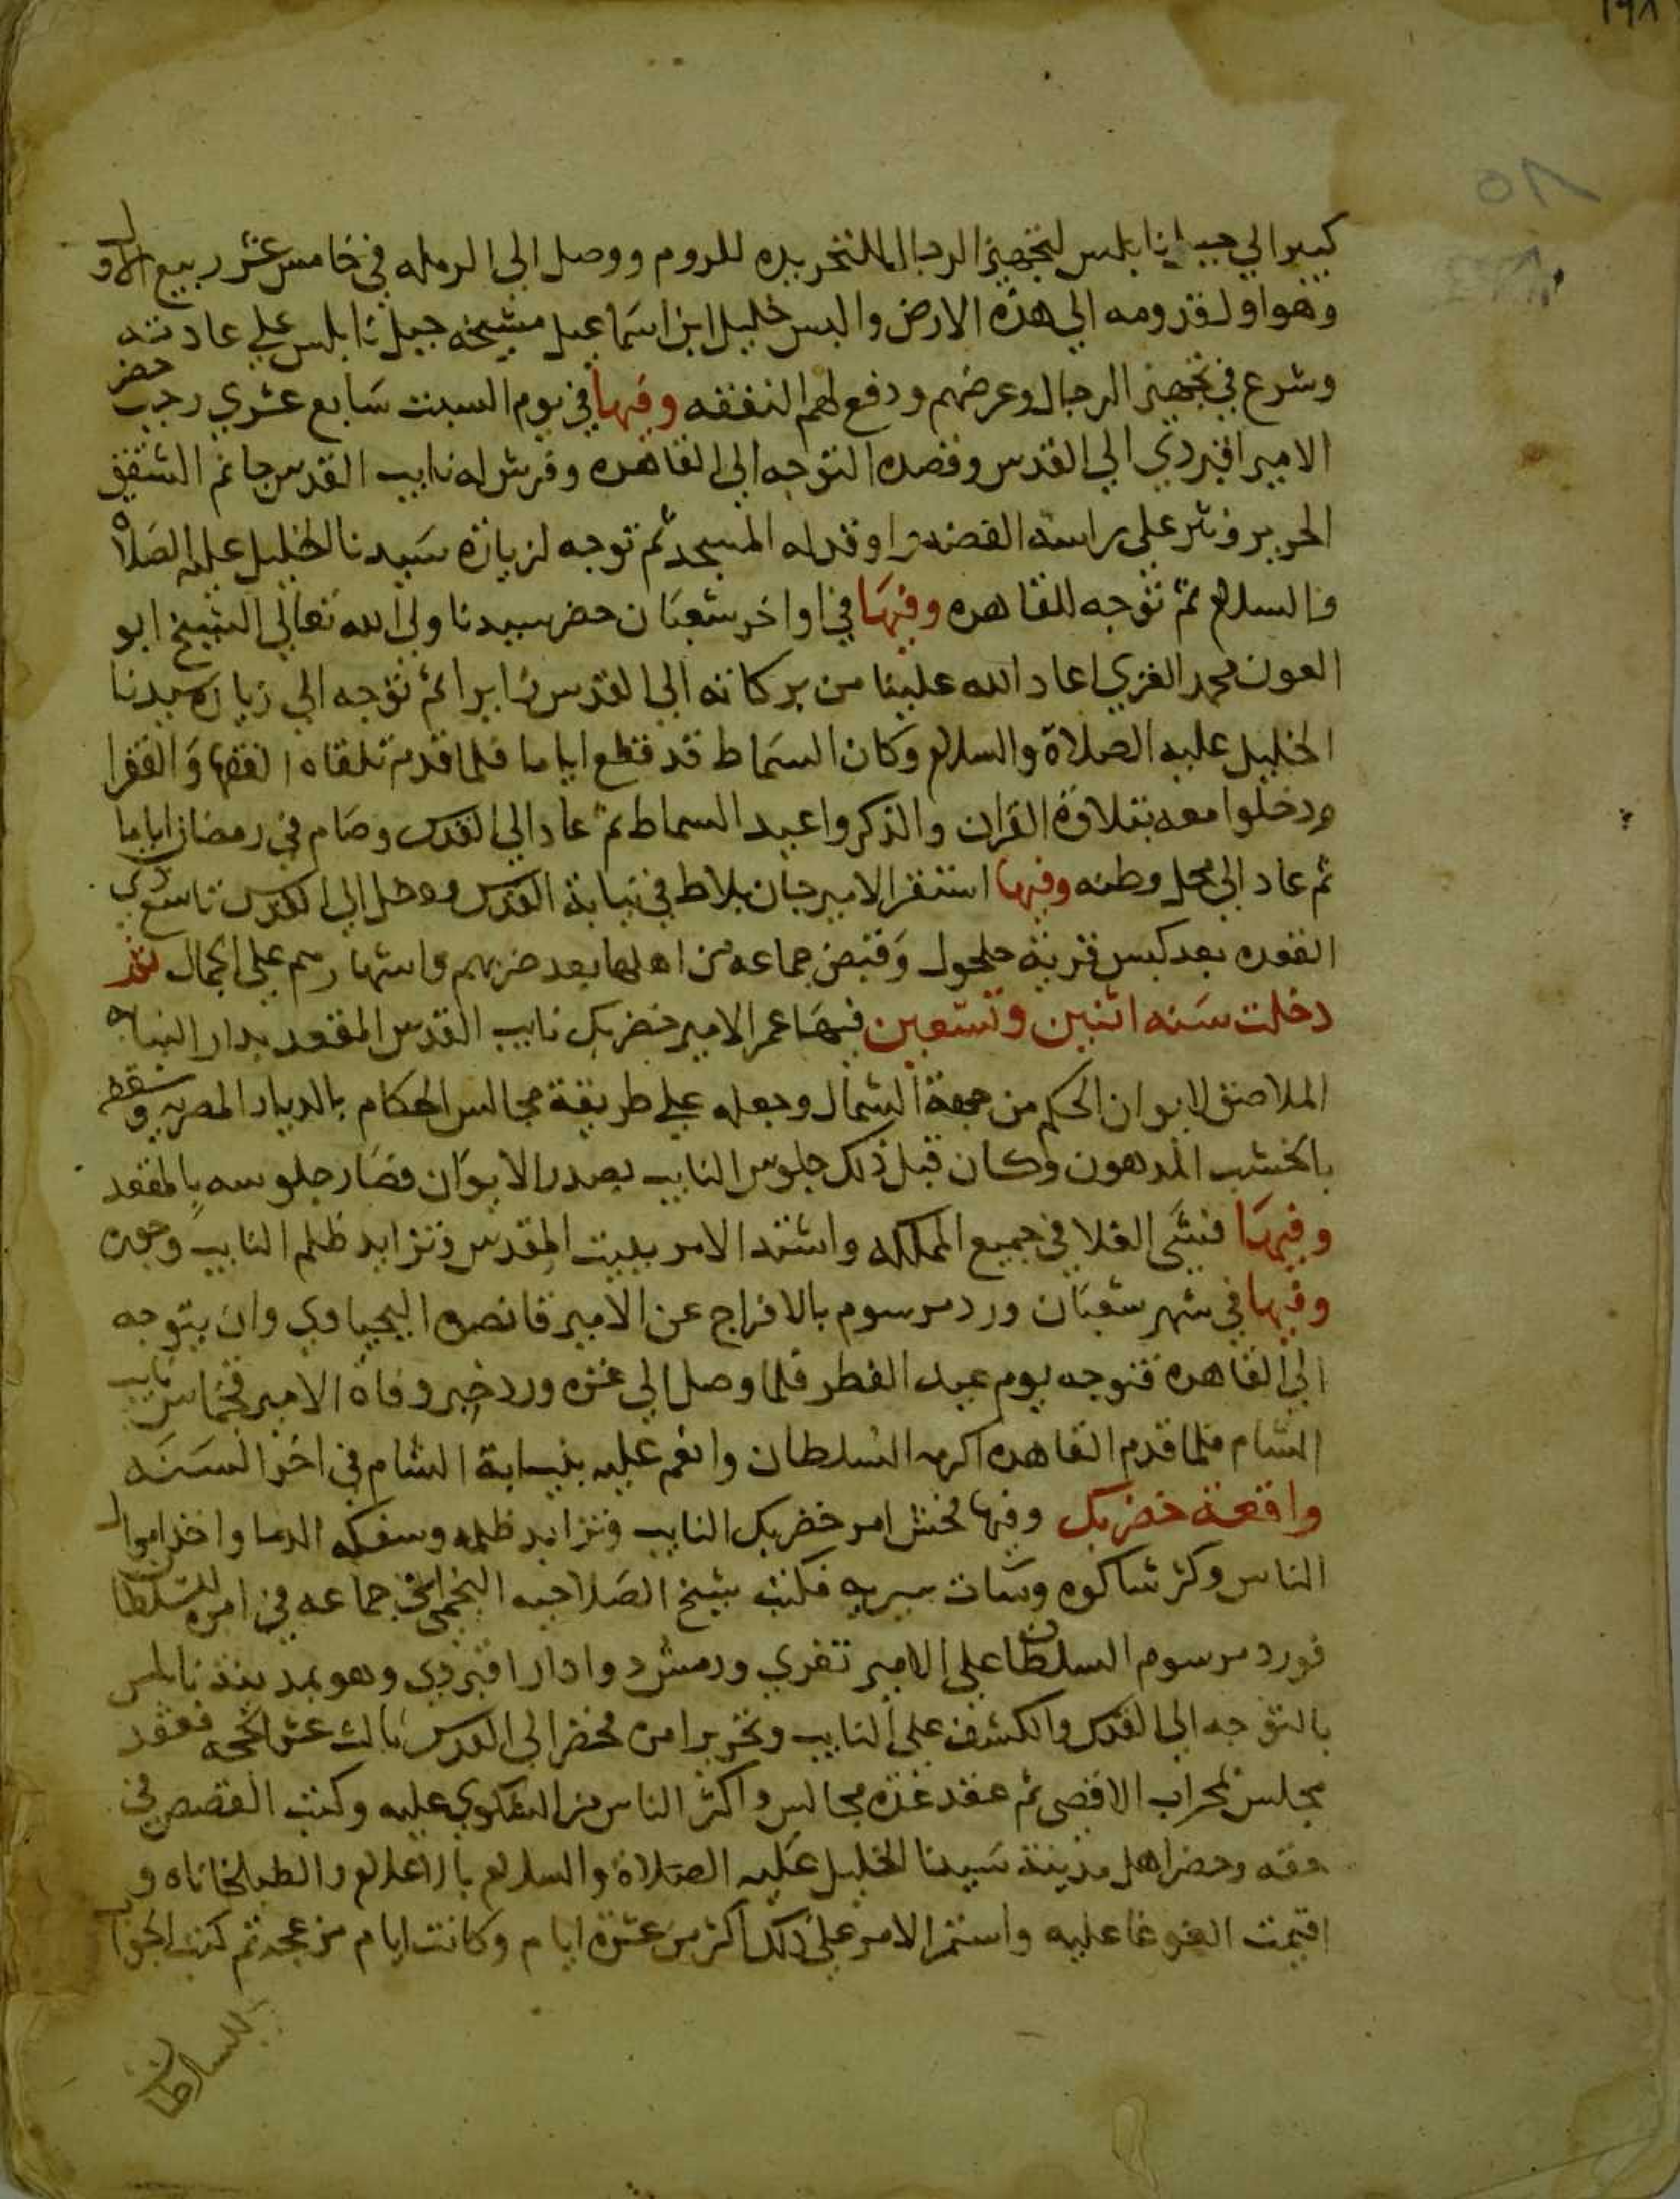 ١٩٨
كبير الي جبل نابلس لتجهيز الرجال للتجريده للروم ووصل الي الرمله في خامس عشر ربيع الاول
وهو اول قدومه الي هذه الارض والبس خليل ابن اسماعيل مشيخه جبل نابلس علي عادته
وشرع في تجهيز الرجال وعرضهم ودفع لهم النفقه وفيها في يوم السبت سابع عشري رجب حضر
الامير اقبردي الي القدس وقصده التوجه الي القاهره وفرش له نايب القدس جانم الشقق
الحرير ونثر علي راسه الفضه واوقد له المسجد ثم توجه لزيارة سيدنا الخليل عليه الصلاة
والسلام ثم توجه للقاهره وفيها في اواخر شعبان حضر سيدنا ولي الله تعالي الشيخ ابو
العون محمد الغزي اعاد الله علينا من بركاته الي القدس زايرا ثم توجه الي زيارة سيدنا
الخليل عليه الصلاة والسلام وكان السماط قد قطع اياما فلما قدم تلقاه الفقها والفقرا
ودخلوا معه بتلاوة القران والذكر واعيد السماط ثم عاد الي القدس وصام في رمضان اياما
ثم عاد الي محل وطنه وفيها استقر الامير جان بلاط في نيابة القدس ودخل الي القدس تاسع ذي
القعده بعد كبس قرية حلحول وقبض جماعه من اهلها بعد ضربهم واشهارهم علي الجمال ثم
دخلت سنه اثنين وتسعين فيها عمر الامير خضر بك نايب القدس المقعد بدار النيابه
الملاصق لايوان الحكم من جهة الشمال وجعله علي طريقة مجالس الحكام بالديار المصريه وسقفه
بالخشب المدهون وكان قبل ذلك جلوس النايب بصدر الايوان فصار جلوسه بالمقعد
وفيها فشي الغلا في جميع المملكه واشتد الامر ببيت المقدس وتزايد ظلم النايب وجوره
وفيها في شهر شعبان ورد مرسوم بالافراج عن الامير قانصوه اليحياوي وان يتوجه
الي القاهره فتوجه يوم عيد الفطر فلما وصل الي غزه ورد خبر وفاة الامير قجماس نايب
الشام فلما قدم القاهره اكرمه السلطان وانعم عليه بنيابة الشام في اخر السنه
واقعة خضر بك وفيها فحش امر خضر بك النايب وتزايد ظلمه وسفكه الدما واخذ اموال
الناس وكثر شاكوه وساءت سيرته فكتب شيخ الصلاحيه النجمي جماعه في امره للسلطان
فورد مرسوم السلطان علي الامير تغري ورمش دوادار اقبردي وهو بمدينة نابلس
بالتوجه الي القدس والكشف علي النايب وتحرير امره فحضر الي القدس ثالث عشر الحجه فعقد
مجلس بمحراب الاقصي ثم عقد عدة مجالس واكثر الناس من الشكوي عليه وكتب القصص في
حقه وحضر اهل مدينة سيدنا الخليل عليه الصلاة والسلام بالاعلام والطبلخاناه و
اقيمت الغوغا عليه واستمر الامر علي ذلك اكثر من عشرة ايام وكانت ايام مزعجه ثم كتب الجواب
للسلطان